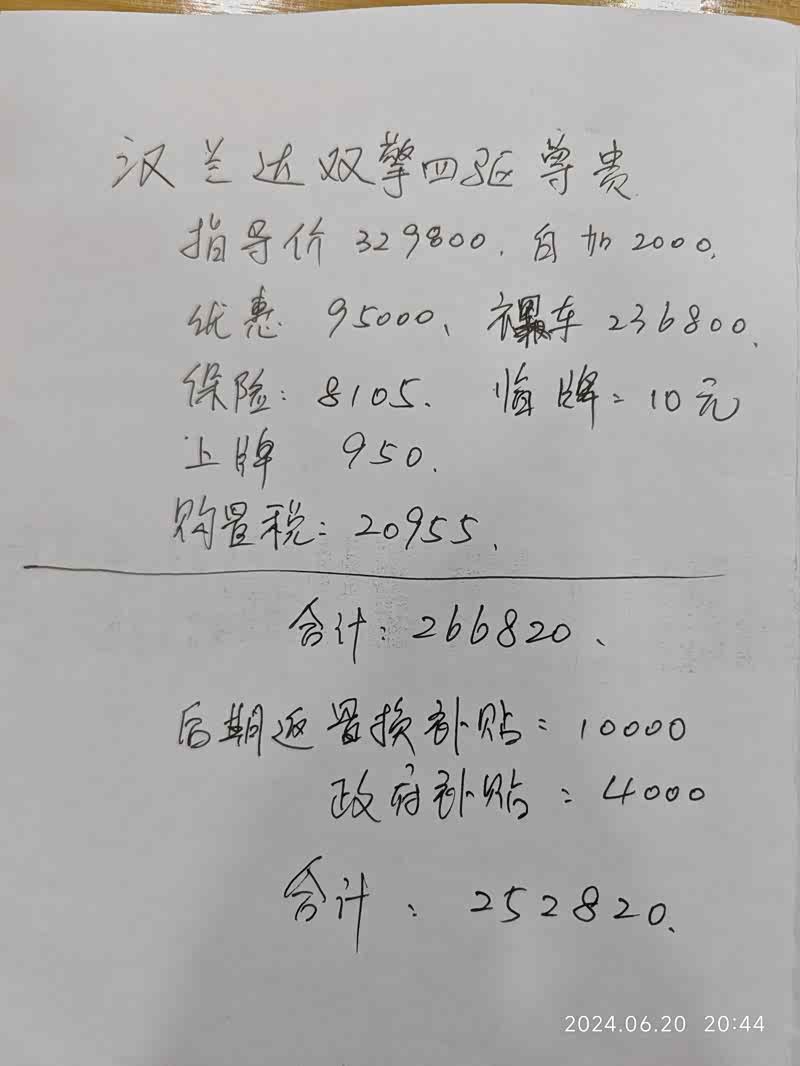 汉兰达双擎四驱尊贵
指导价 329800. 自加 2000.
优惠 95000、裸车 236800.
保险: 8105. 临牌: 10元
上牌 950.
购置税: 20955.
合计: 266820、
后期返置换补贴: 10000
政府补贴: 4000
合计: 252820.
2024.06.20 20:44